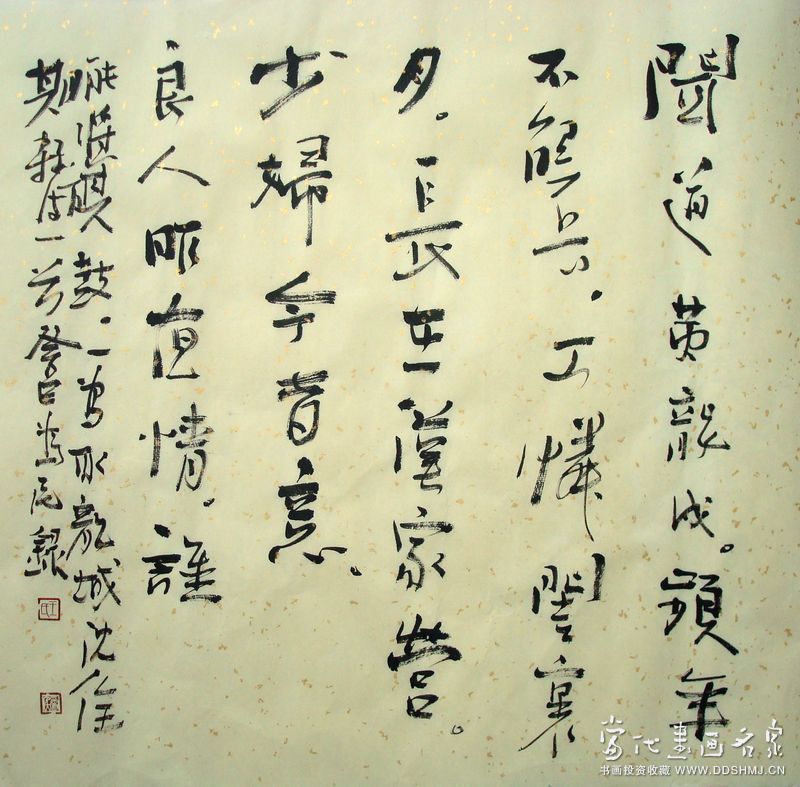 聞道黃龍戍。頻年
不解兵。可憐閨裏
月。長在漢家營。
少婦今旾意。
良人昨夜情。誰
能將旗鼓。一為取龍城 沈佺
期雜詩一首 為民錄
當代書畫名家
书画投资收藏 WWW.DDSHMJ.CN